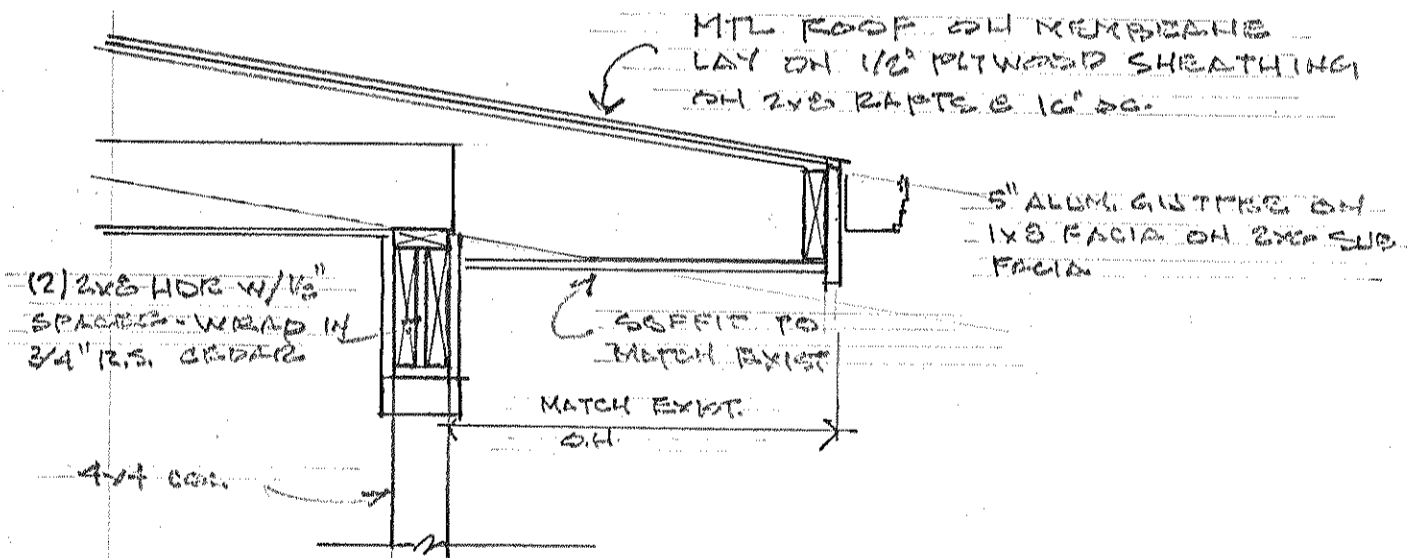 MTL ROOF ON MEMBRANE
LAY ON 1/2" PLYWOOD SHEATHING
ON 2x8 RAFTS @ 16" OC.
5" ALUM. GUTTER ON
1x8 FACIA ON SUB
FACIA
(2) 2x8 HDR W/ 1/2"
SPACER - WRAP IN
3/4" R.S. CEDAR
SOFFIT TO
MATCH EXIST
MATCH EXIST.
O.H.
4x4 COL.